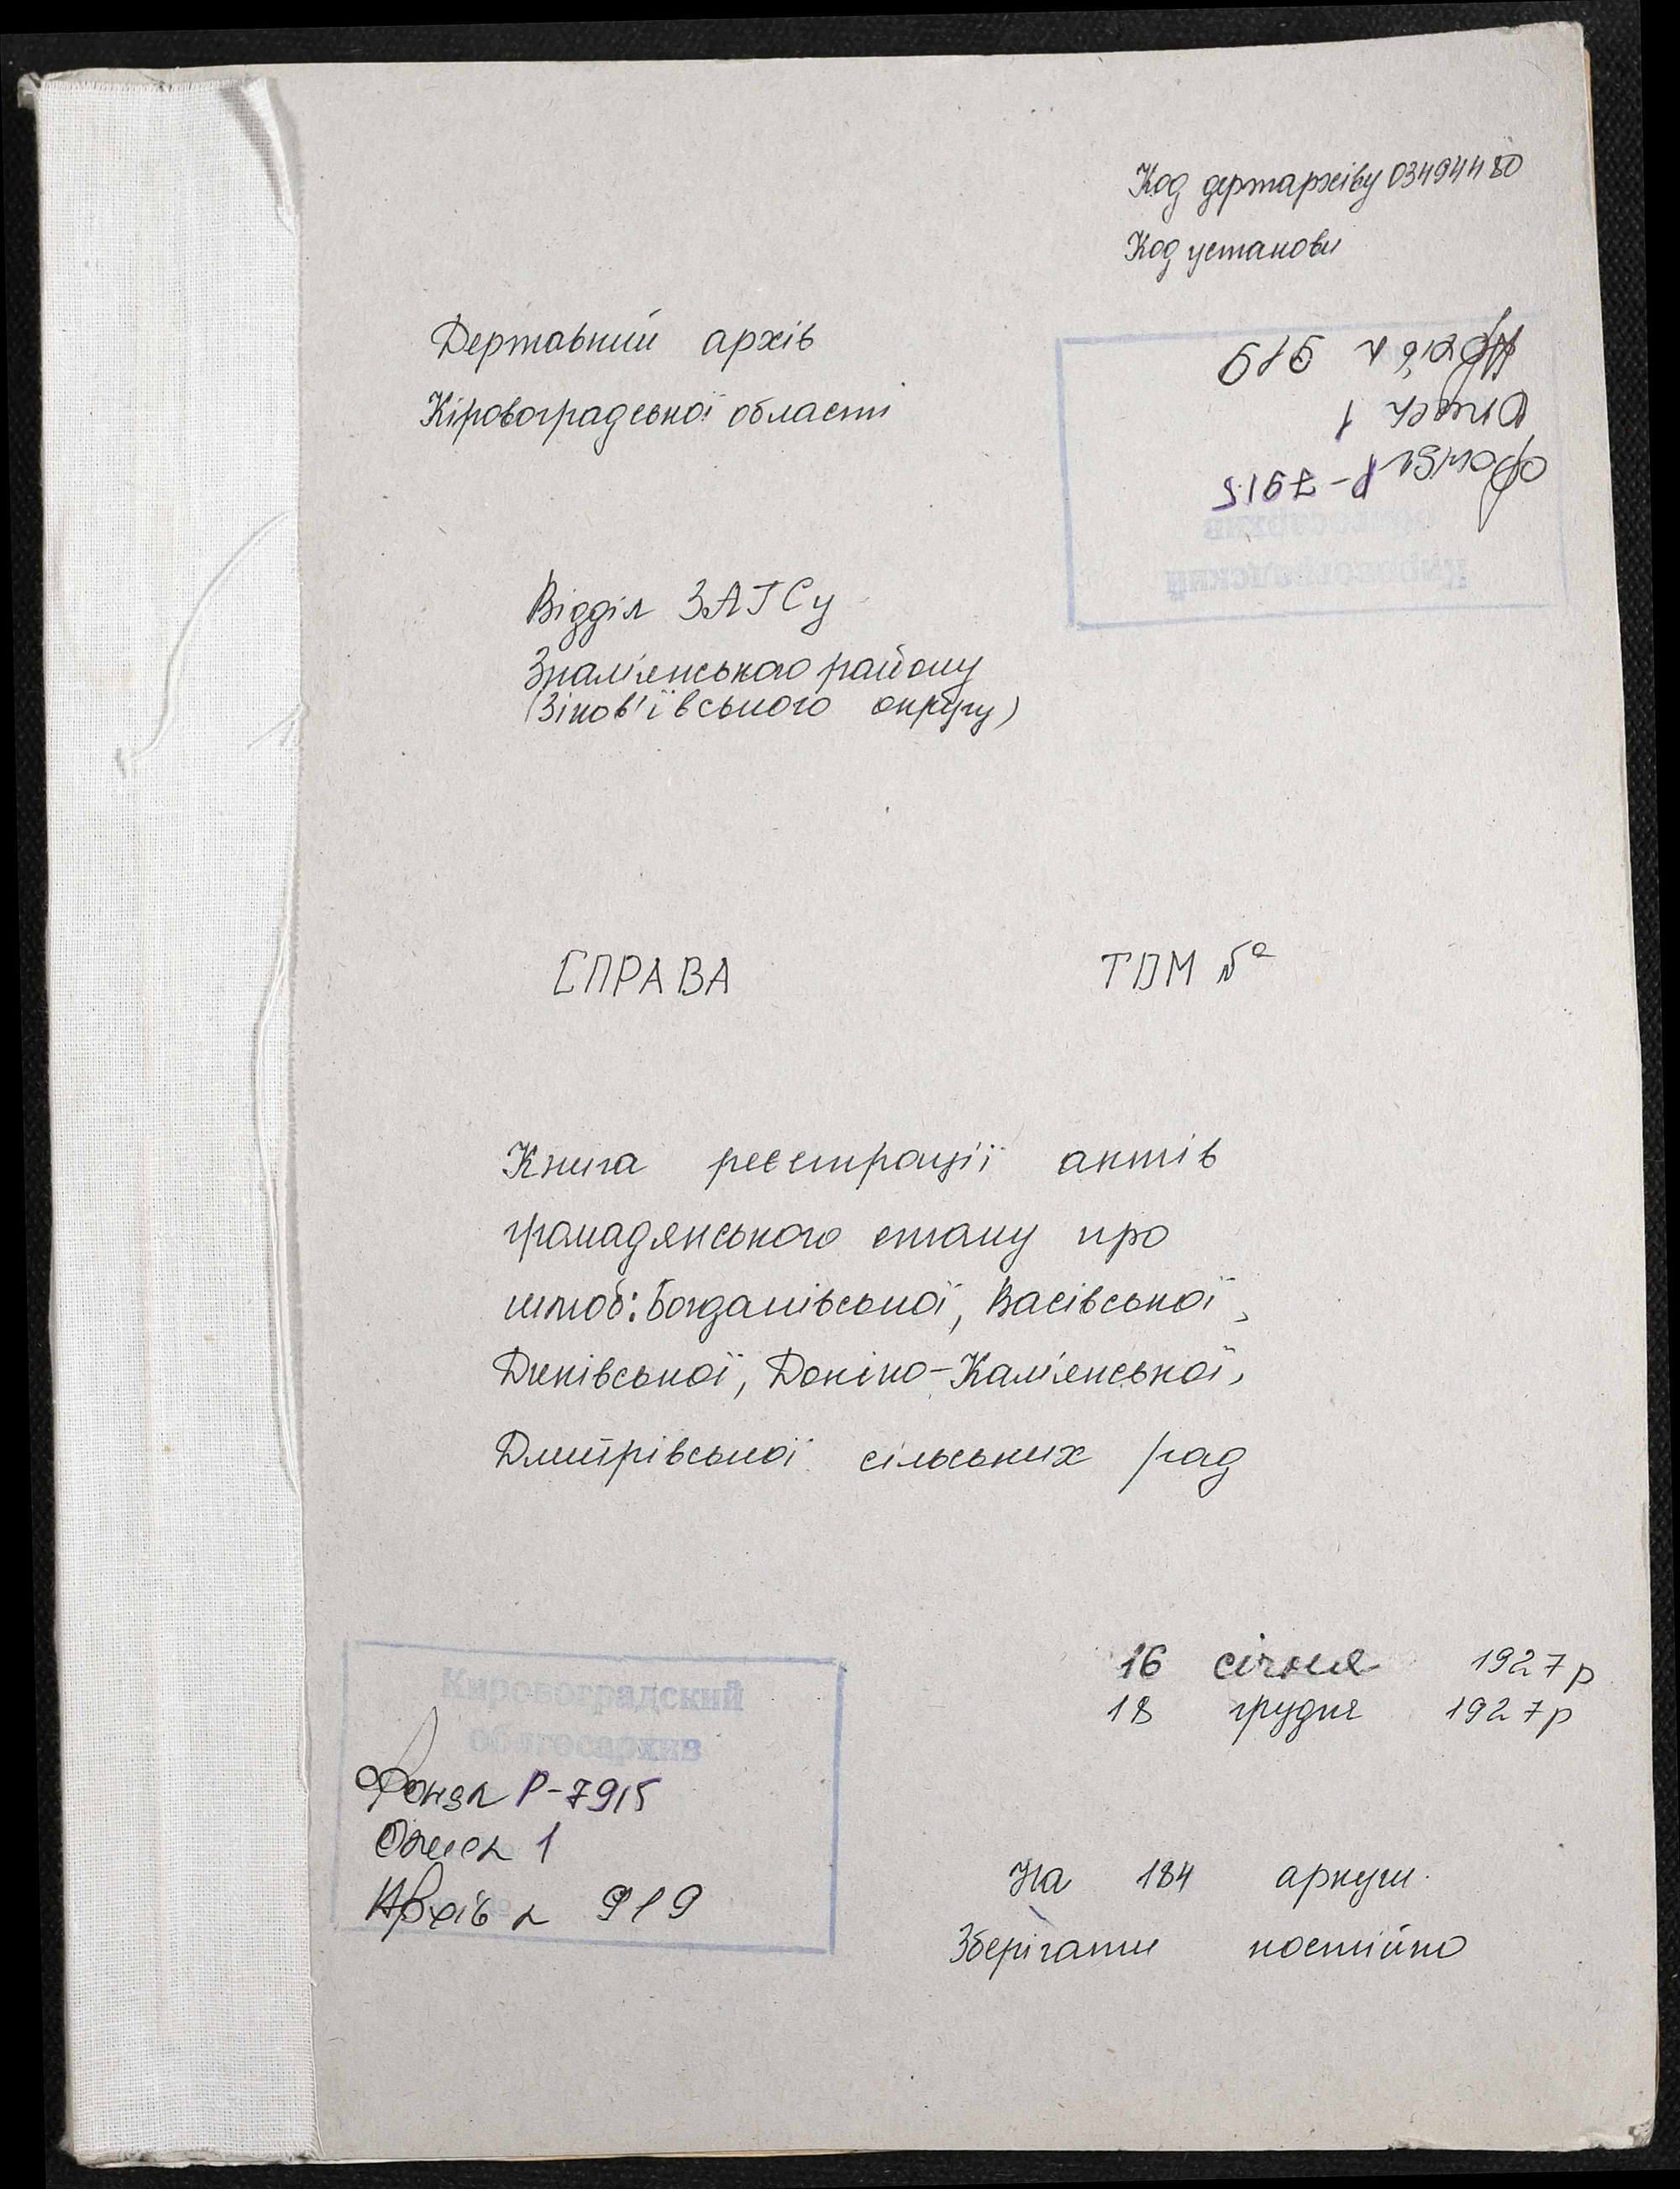 Код держархіву 03494480
Код установи
Державний архів
Кіровоградської області
Кировоградский
облгосархив
Фонд Р-7915
Опись 1
919
Відділ ЗАГСу
Знам'янського району
(Зінов'ївського округу)
СПРАВА ТОМ №
Книга реєстрації актів
громадянського стану про
шлюб: Богданівської, Васівської,
Диківської, Доніно-Кам'янської,
Дмитрівської сільських рад
16 січня 1927 р
18 грудня 1927 р
Кировоградский
облгосархив
Фонд Р-7915
Опись 1
919
На 184 аркуш.
Зберігати постійно